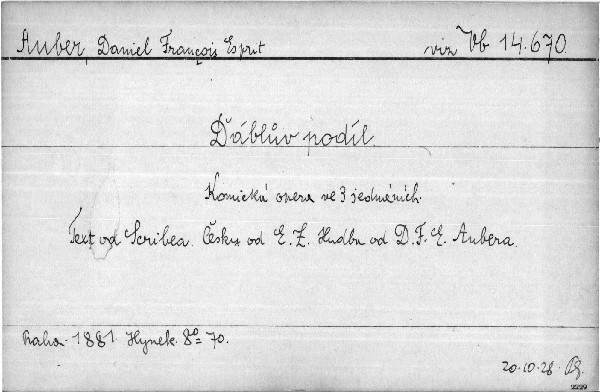 Auber, Daniel François Esprit viz Vb 14.670
Ďáblův podíl.
Komická opera ve 3 jednáních.
Text od Scribea. Česky od E. Z. Hudba od D. F. E. Aubera.
Praha. 1881. Hynek. 8° 70.
20.10.28